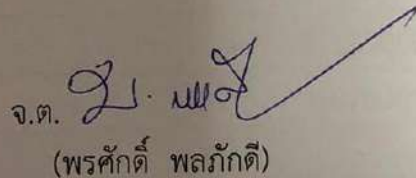 จ.ต.
(พรศักดิ์ พลภักดี)